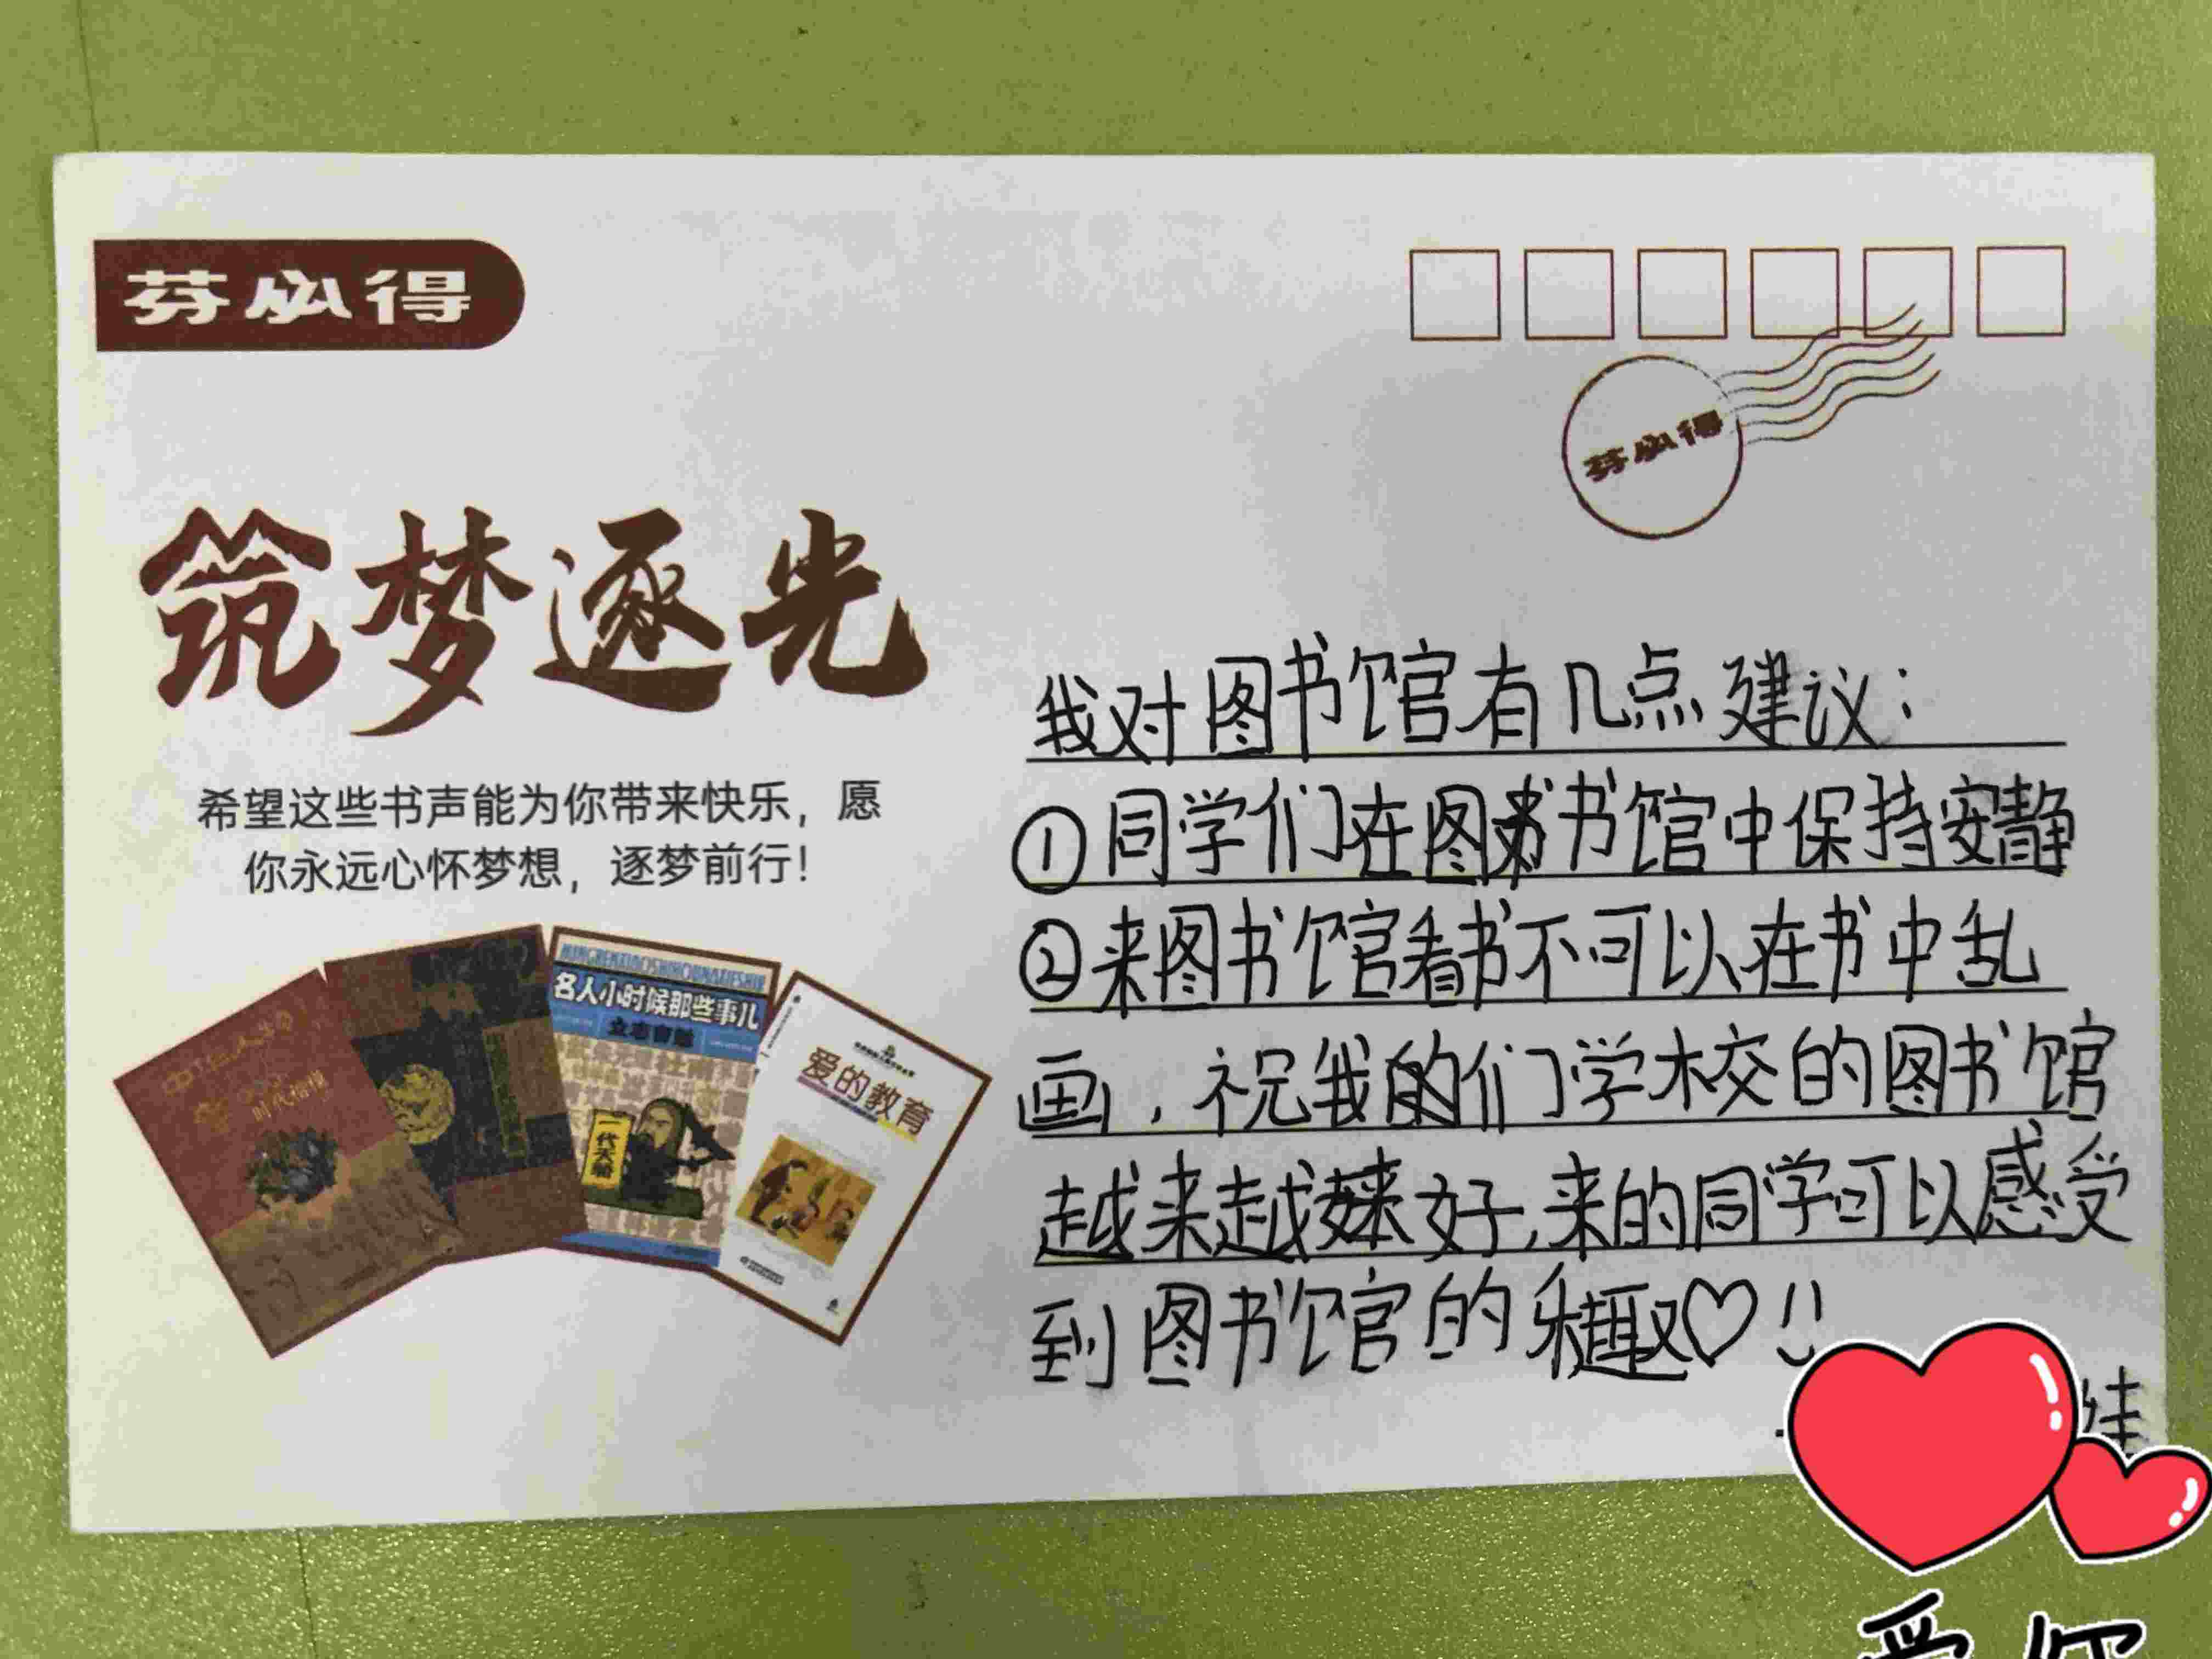 芬必得
芬必得
筑梦逐光
希望这些书声能为你带来快乐，愿
你永远心怀梦想，逐梦前行！
名人小时候那些事儿
立志智慧
一代天骄
爱的教育
时代楷模
我对图书馆有几点建议：
①同学们在图书馆中保持安静
②来图书馆看书不可以在书中乱
画，祝我们学校的图书馆
越来越好，来的同学可以感受
到图书馆的乐趣♡
爱你